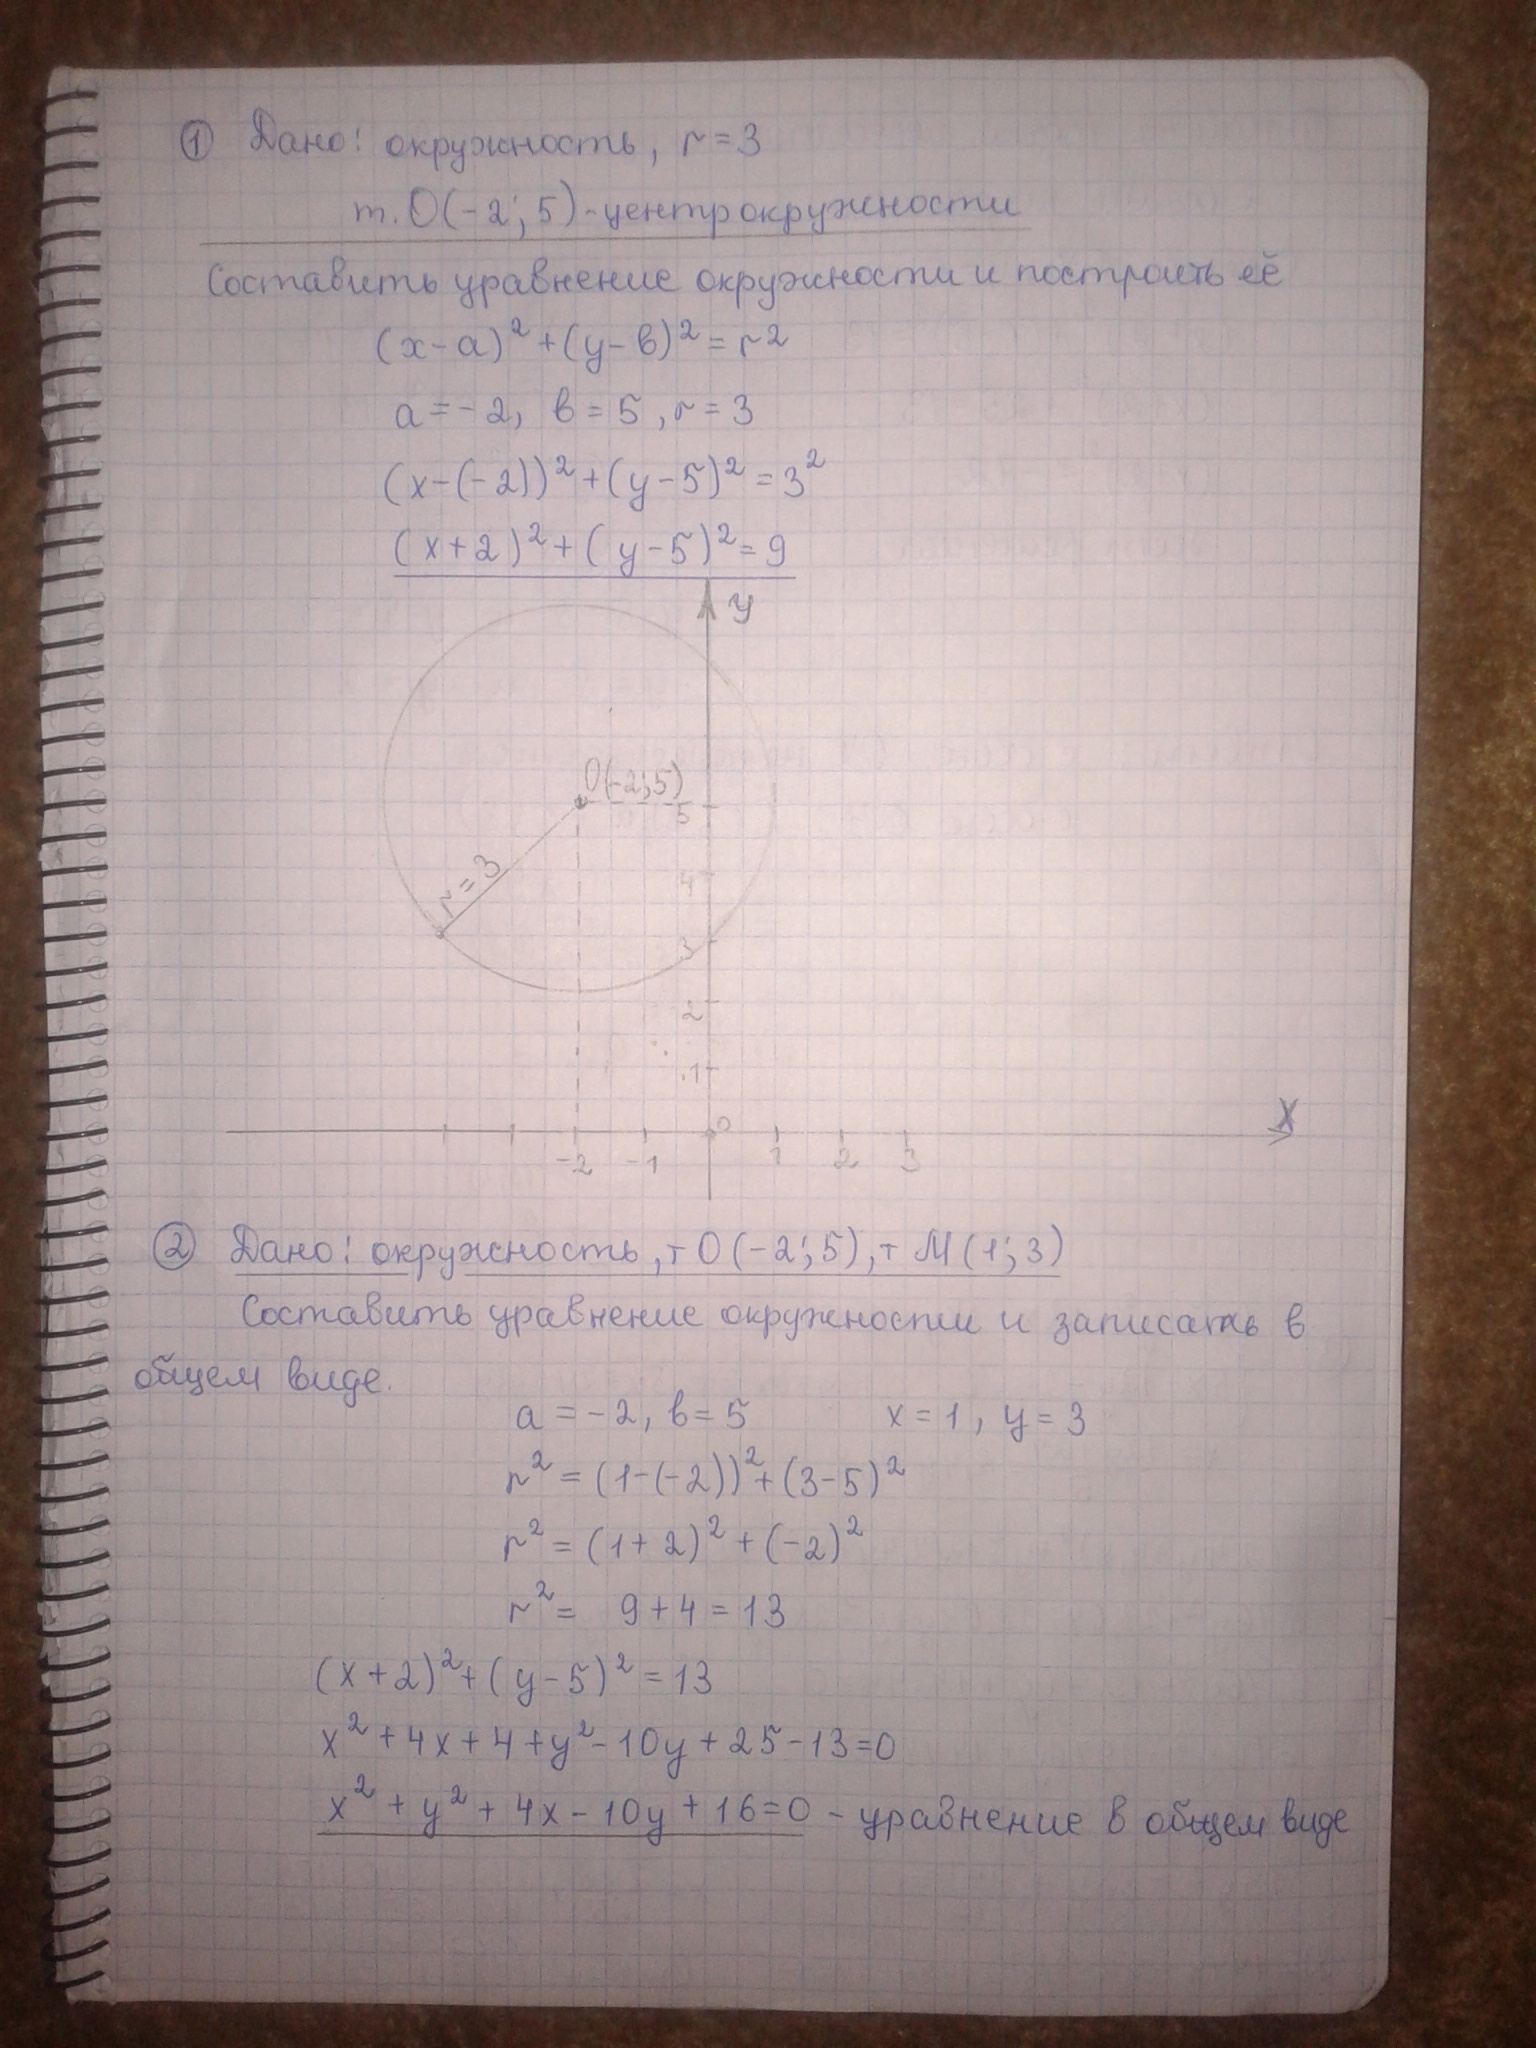 ① Дано: окружность, r = 3
т. О(-2; 5) - центр окружности
Составить уравнение окружности и построить её
(x-a)² + (y-в)² = r²
a = -2, в = 5, r = 3
(x-(-2))² + (y-5)² = 3²
(x+2)² + (y-5)² = 9
y
О(-2;5)
5
r = 3
4
3
2
1
0
X
-2 -1 1 2 3
② Дано: окружность, т О(-2; 5), т М(1; 3)
Составить уравнение окружности и записать в
общем виде.
a = -2, в = 5 x = 1, y = 3
r² = (1-(-2))² + (3-5)²
r² = (1+2)² + (-2)²
r² = 9 + 4 = 13
(x+2)² + (y-5)² = 13
x² + 4x + 4 + y² - 10y + 25 - 13 = 0
x² + y² + 4x - 10y + 16 = 0 - уравнение в общем виде